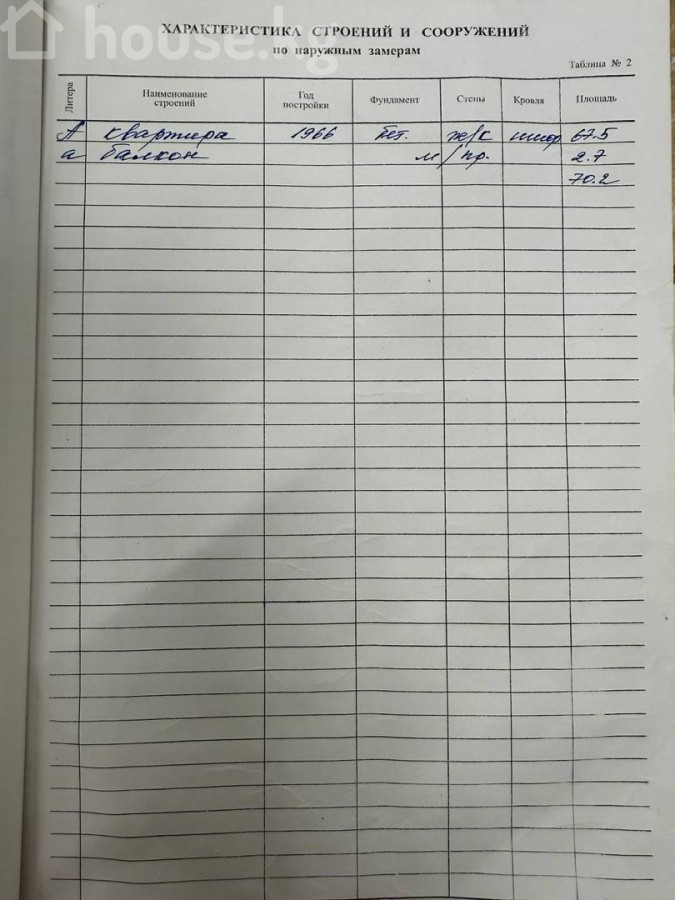 house.kg
ХАРАКТЕРИСТИКА СТРОЕНИЙ И СООРУЖЕНИЙ
по наружным замерам
Таблица № 2
Литера Наименование строений Год постройки Фундамент Стены Кровля Площадь
А квартира 1966 бет. ж/к шифр 67.5
а балкон м/пр. 2.7
70.2